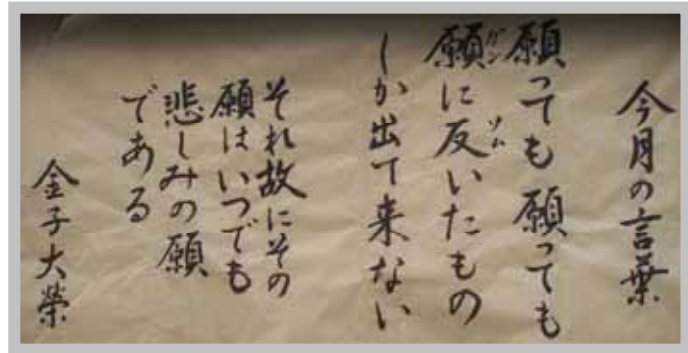 今月の言葉
願っても願っても
願に反いたもの
しか出て来ない
それ故にその
願はいつでも
悲しみの願
である
金子大榮
ガン
ソム